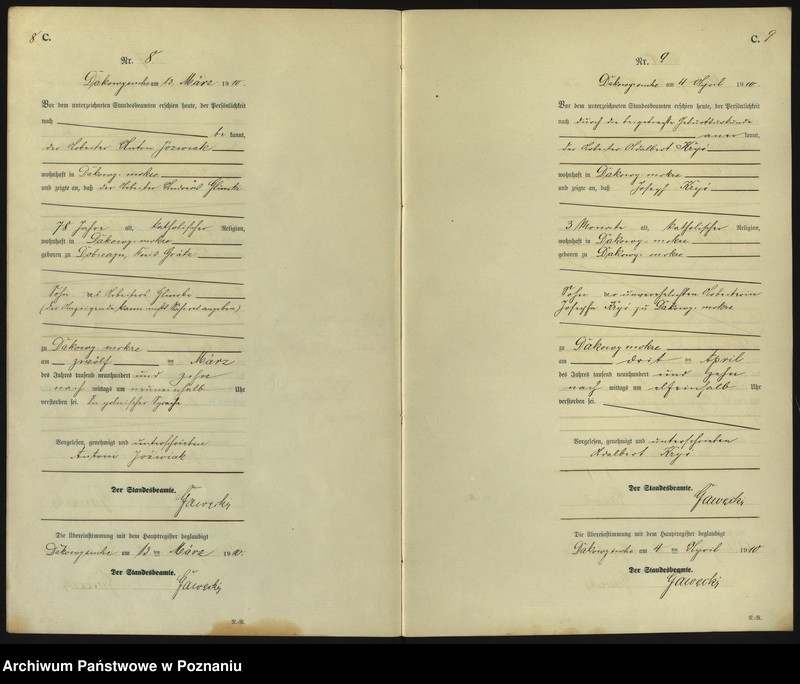 8 C.
Nr. 8
Dakowymokre am 13. März 1910.
Vor dem unterzeichneten Standesbeamten erschien heute, der Persönlichkeit
nach be kannt,
der Arbeiter Anton Jozwiak
wohnhaft in Dakowy-mokre
und zeigte an, daß der Arbeiter Andreas Glinski
78 Jahre alt, katholischer Religion,
wohnhaft in Dakowy-mokre
geboren zu Kreis Grätz
Sohn des Arbeiters Glinski
(Der Anzeigende kann nicht angeben)
zu Dakowy mokre
am zwölf ten März
des Jahres tausend neunhundert und zehn
nach mittags um neuneinhalb Uhr
verstorben sei. In polnischer Sprache
Vorgelesen, genehmigt und unterschrieben
Antoni Jóźwiak
Der Standesbeamte.
Gawecki
Die Übereinstimmung mit dem Hauptregister beglaubigt
Dakowymokre am 13 ten März 1910.
Der Standesbeamte.
Gawecki
C. 9
Nr. 9
Dakowymokre am 4 April 1910.
Vor dem unterzeichneten Standesbeamten erschien heute, der Persönlichkeit
nach durch die beigebrachte Geburtsurkunde
aner kannt,
der Arbeiter Adalbert
wohnhaft in Dakowy-mokre
und zeigte an, daß Joseph
3 Monate alt, katholischer Religion,
wohnhaft in Dakowy-mokre
geboren zu Dakowy-mokre
Sohn der unverehelichten Arbeiterin
Josepha zu Dakowy-mokre
zu Dakowy mokre
am drit ten April
des Jahres tausend neunhundert und zehn
nach mittags um elfeinhalb Uhr
verstorben sei.
Vorgelesen, genehmigt und unterschrieben
Adalbert
Der Standesbeamte.
Gawecki
Die Übereinstimmung mit dem Hauptregister beglaubigt
Dakowymokre am 4 ten April 1910
Der Standesbeamte.
Gawecki
Archiwum Państwowe w Poznaniu